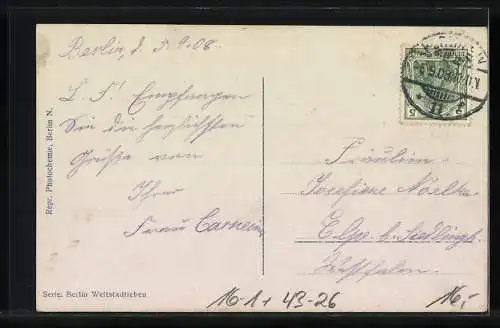 Berlin, d. 5.9.08.
L. F! Empfangen
Sie die herzlichsten
Grüße von
Ihrer
Frau Carnein
Fräulein
Josefiene Nöelke
Elpe b. Siedlingh.
Westfalen.
Repr. Photochemie, Berlin N.
Serie: Berlin Weltstadtleben
16-1+ 43-26
16,-
5 5